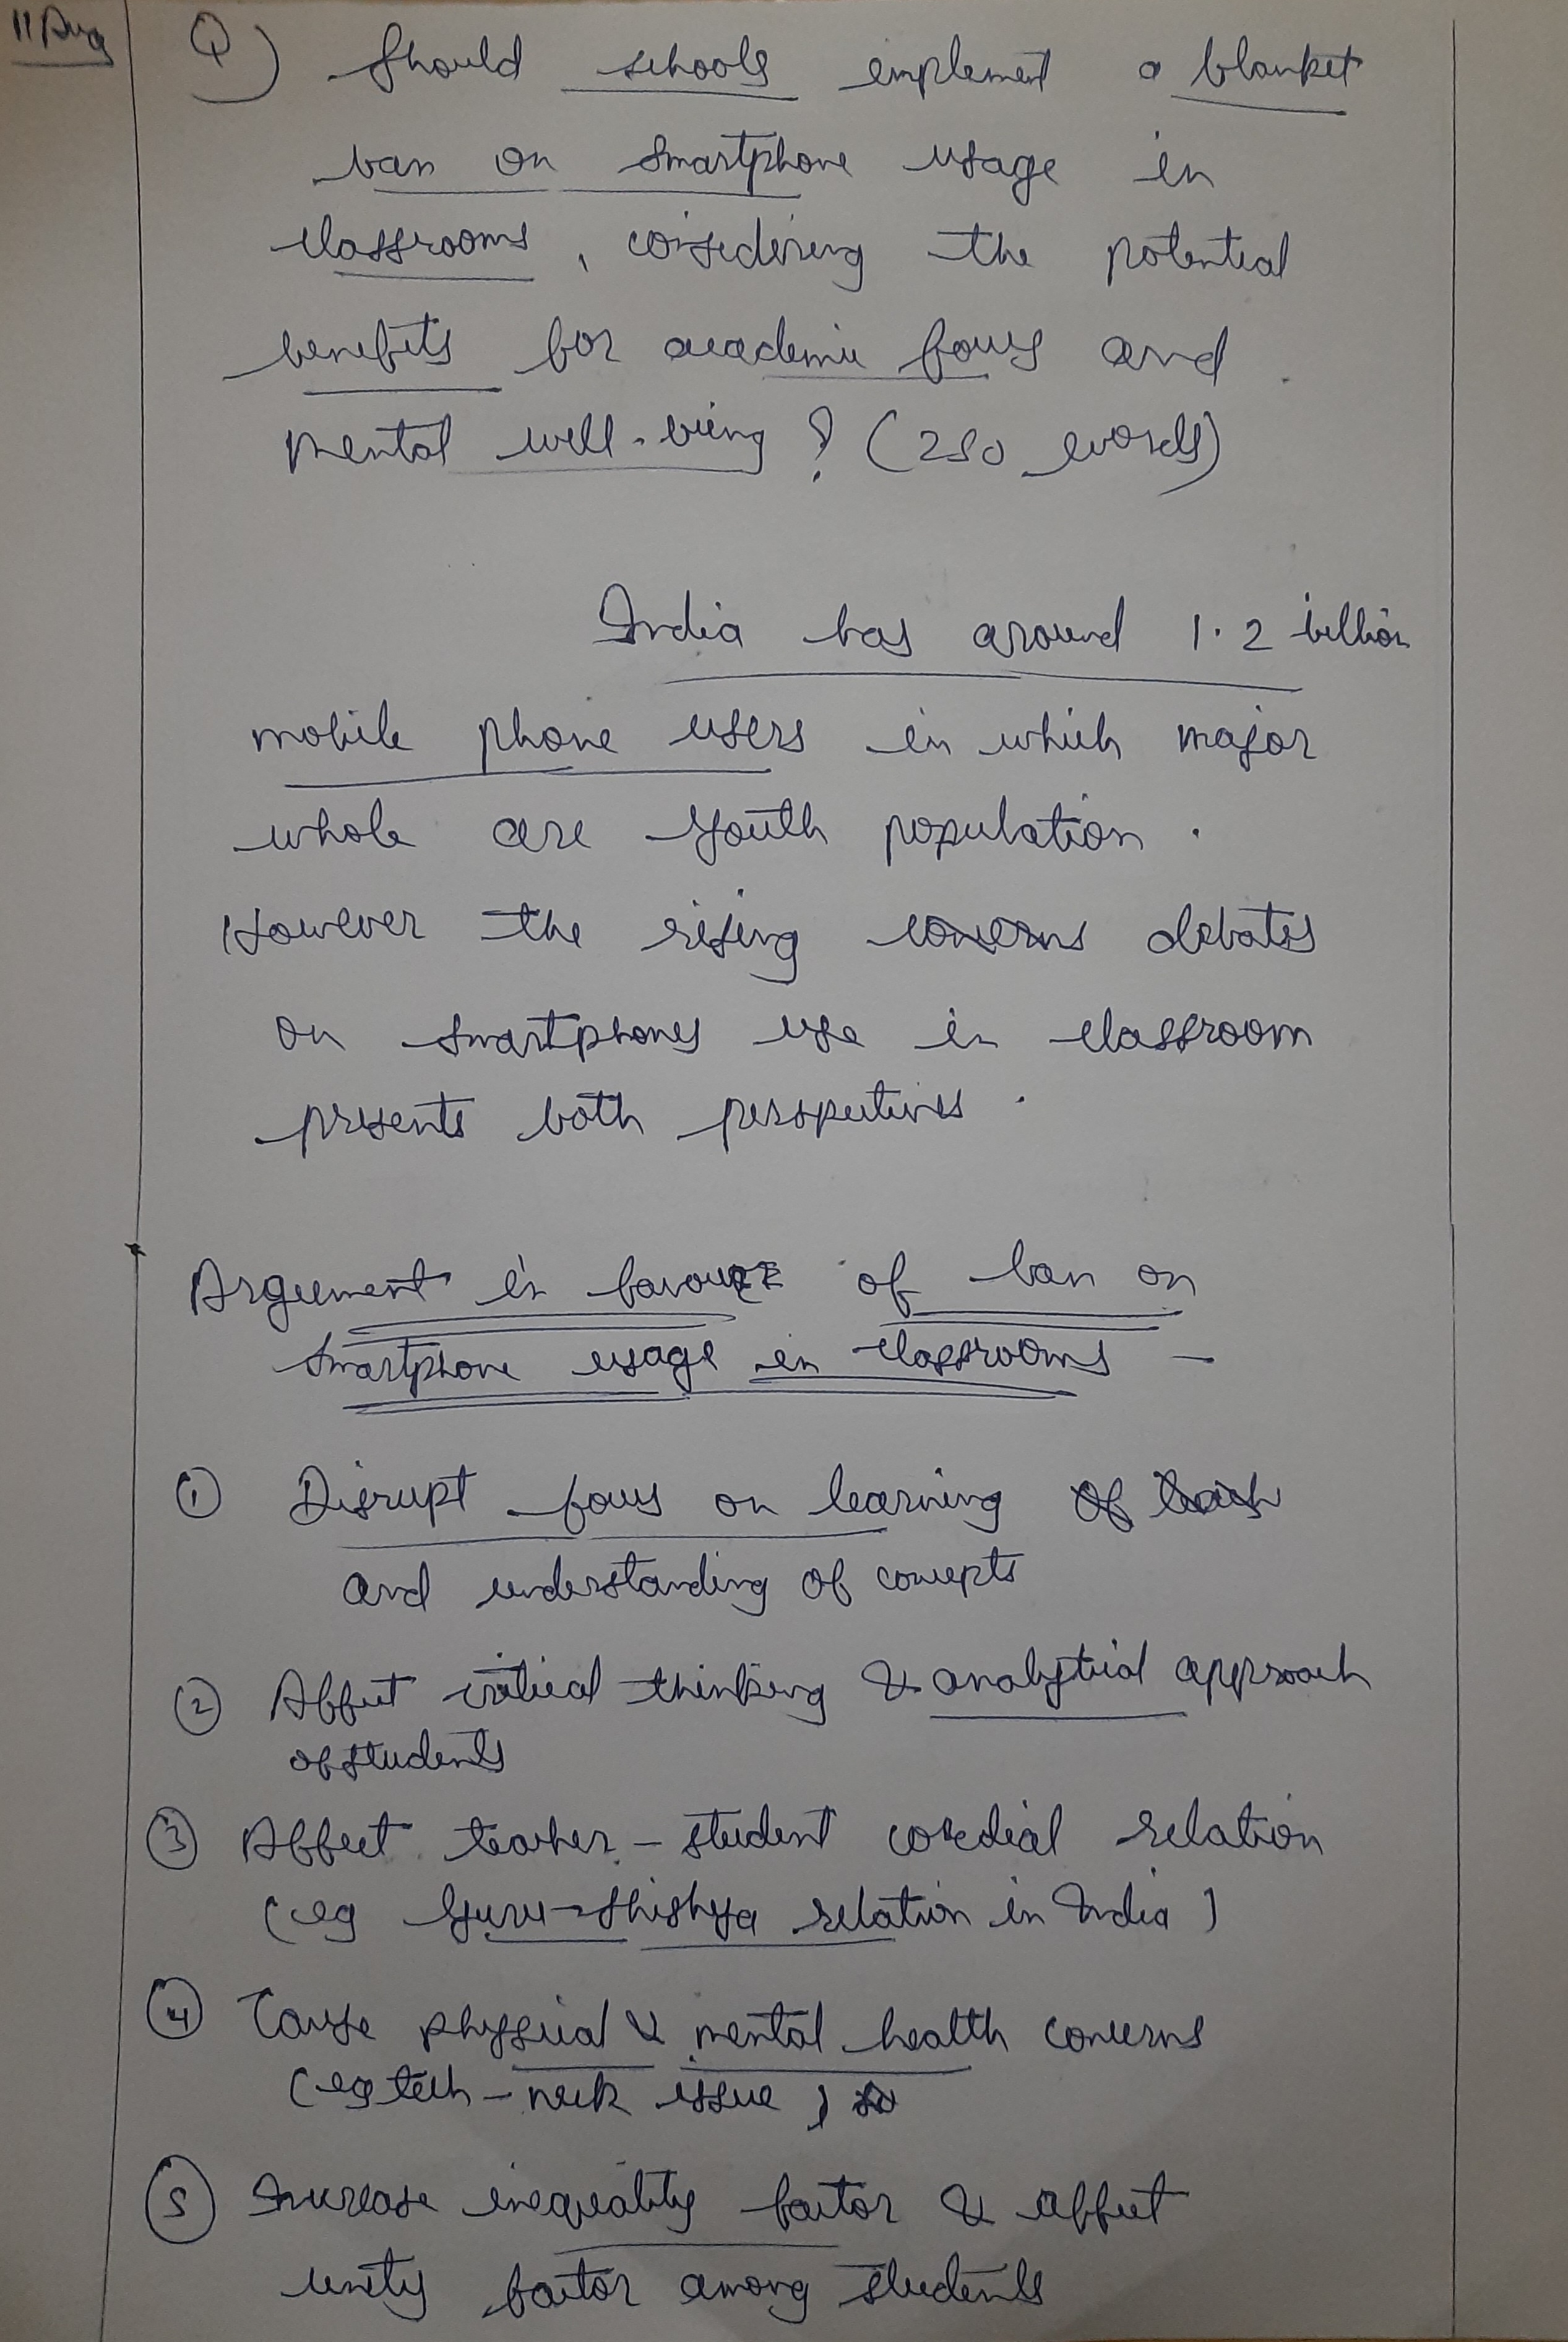 11 Aug
Q) Should schools implement a blanket
ban on smartphone usage in
classrooms, considering the potential
benefits for academic focus and
mental well-being? (250 words)
India has around 1.2 billion
mobile phone users in which major
whole are youth population.
However the rising concerns debates
on smartphones use in classroom
presents both perspectives.
Arguement in favour of ban on
smartphone usage in classrooms -
① Disrupt focus on learning of
and understanding of concepts
② Affect critical thinking & analytical approach
of students
③ Affect teacher - student cordial relation
(eg Guru-Shishya relation in India)
④ Cause physical & mental health concerns
(eg tech-neck issue)
⑤ Increase inequality factor & affect
unity factor among students